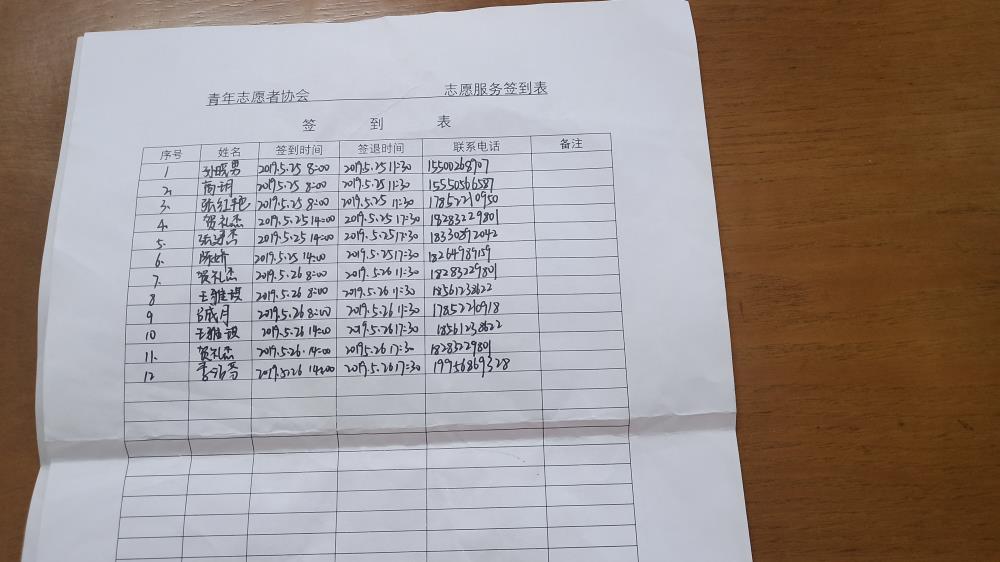 青年志愿者协会 志愿服务签到表
签 到 表
序号 姓名 签到时间 签退时间 联系电话 备注
1 孙晓男 2019.5.25 8:00 2019.5.25 11:30 15500268907
2. 2019.5.25 8:00 2019.5.25 11:30 15550566587
3. 张红艳 2019.5.25 8:00 2019.5.25 11:30 17852210950
4. 贺礼杰 2019.5.25 14:00 2019.5.25 17:30 18283229801
5. 2019.5.25 14:00 2019.5.25 17:30 18330892042
6. 陈娇 2019.5.25 14:00 2019.5.25 17:30 18264989159
7. 贺礼杰 2019.5.26 8:00 2019.5.26 11:30 18283229801
8 2019.5.26 8:00 2019.5.26 11:30 18561238622
9 2019.5.26 8:00 2019.5.26 11:30 17852210918
10 2019.5.26 14:00 2019.5.26 17:30 18561238622
11. 贺礼杰 2019.5.26.14:00 2019.5.26 17:30 18283229801
12 2019.5.26 14:00 2019.5.26 17:30 19956869328